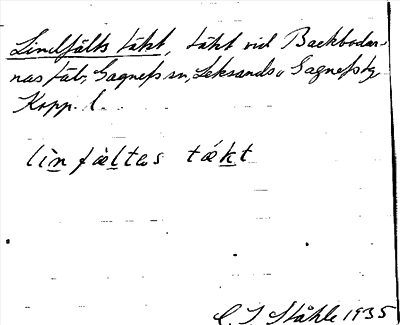 Lindfälts täkt, täkt vid Backbodar-
nas fäb, Gagnefs sn, Leksands o Gagnefs tg
Kopp. l.
lìnfæ̀ltas tǽkt
C. I. Ståhle 1935